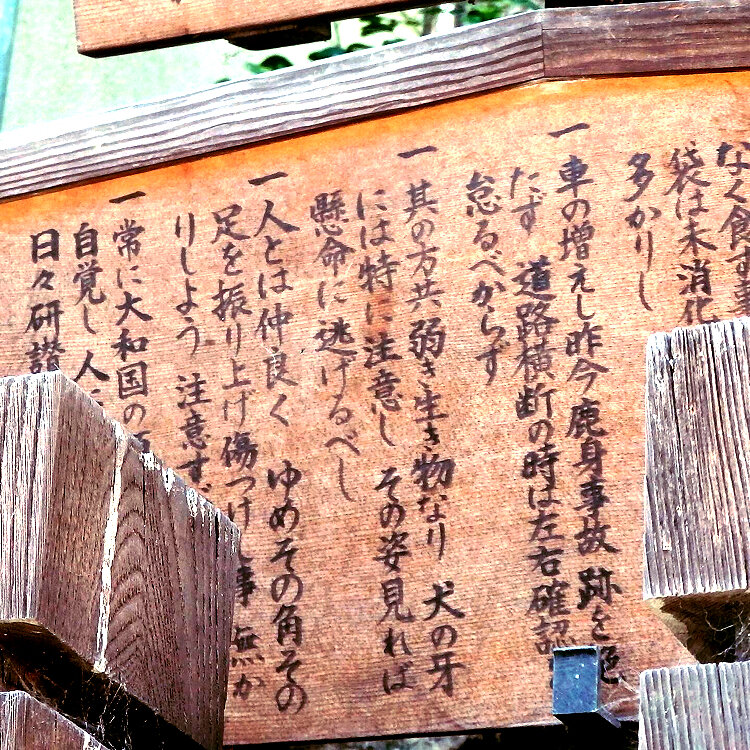 なく
袋は未消化
多かりし
一 車の増えし昨今 鹿身事故 跡を絶
たず 道路横断の時は左右確認
怠るべからず
一 其の方共 弱き生き物なり 犬の牙
には特に注意し その姿見れば
懸命に逃げるべし
一 人とは仲良く ゆめその角その
足を振り上げ傷つけし事 無か
りしよう 注意す
一 常に大和国の
自覚し 人
日々研讃